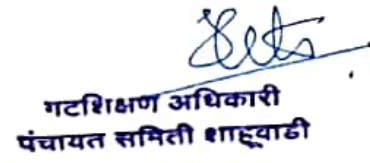 गटशिक्षण अधिकारी
पंचायत समिती शाहूवाडी